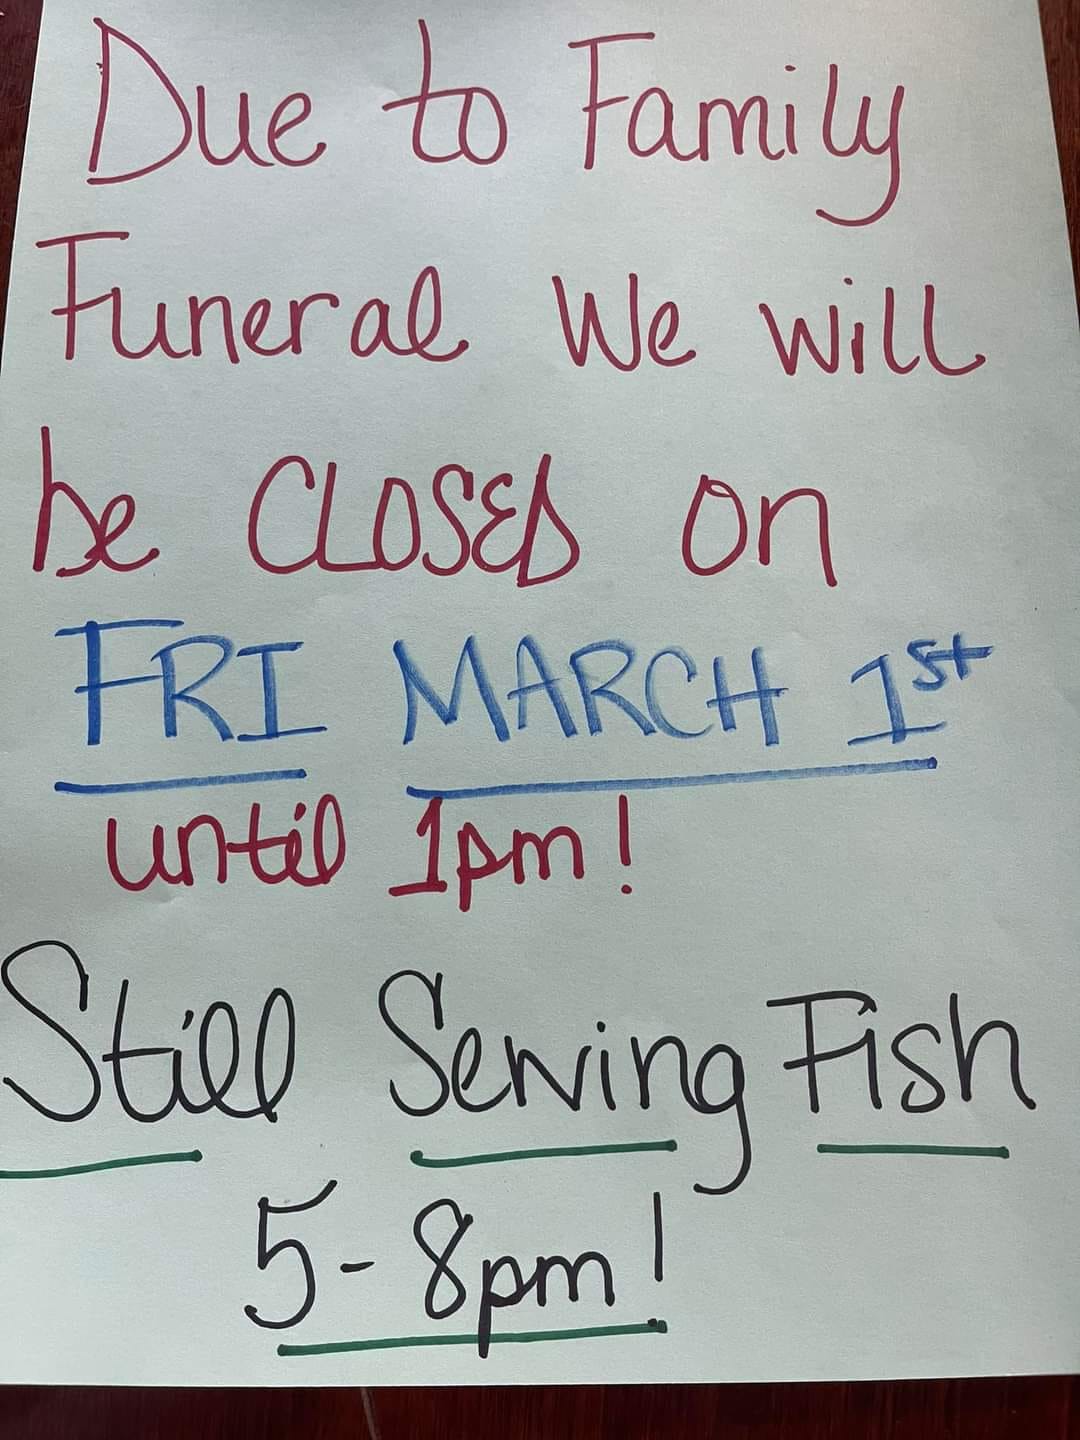 Due to Family
Funeral We will
be CLOSED on
FRI MARCH 1st
until 1pm!
Still Serving Fish
5-8pm!